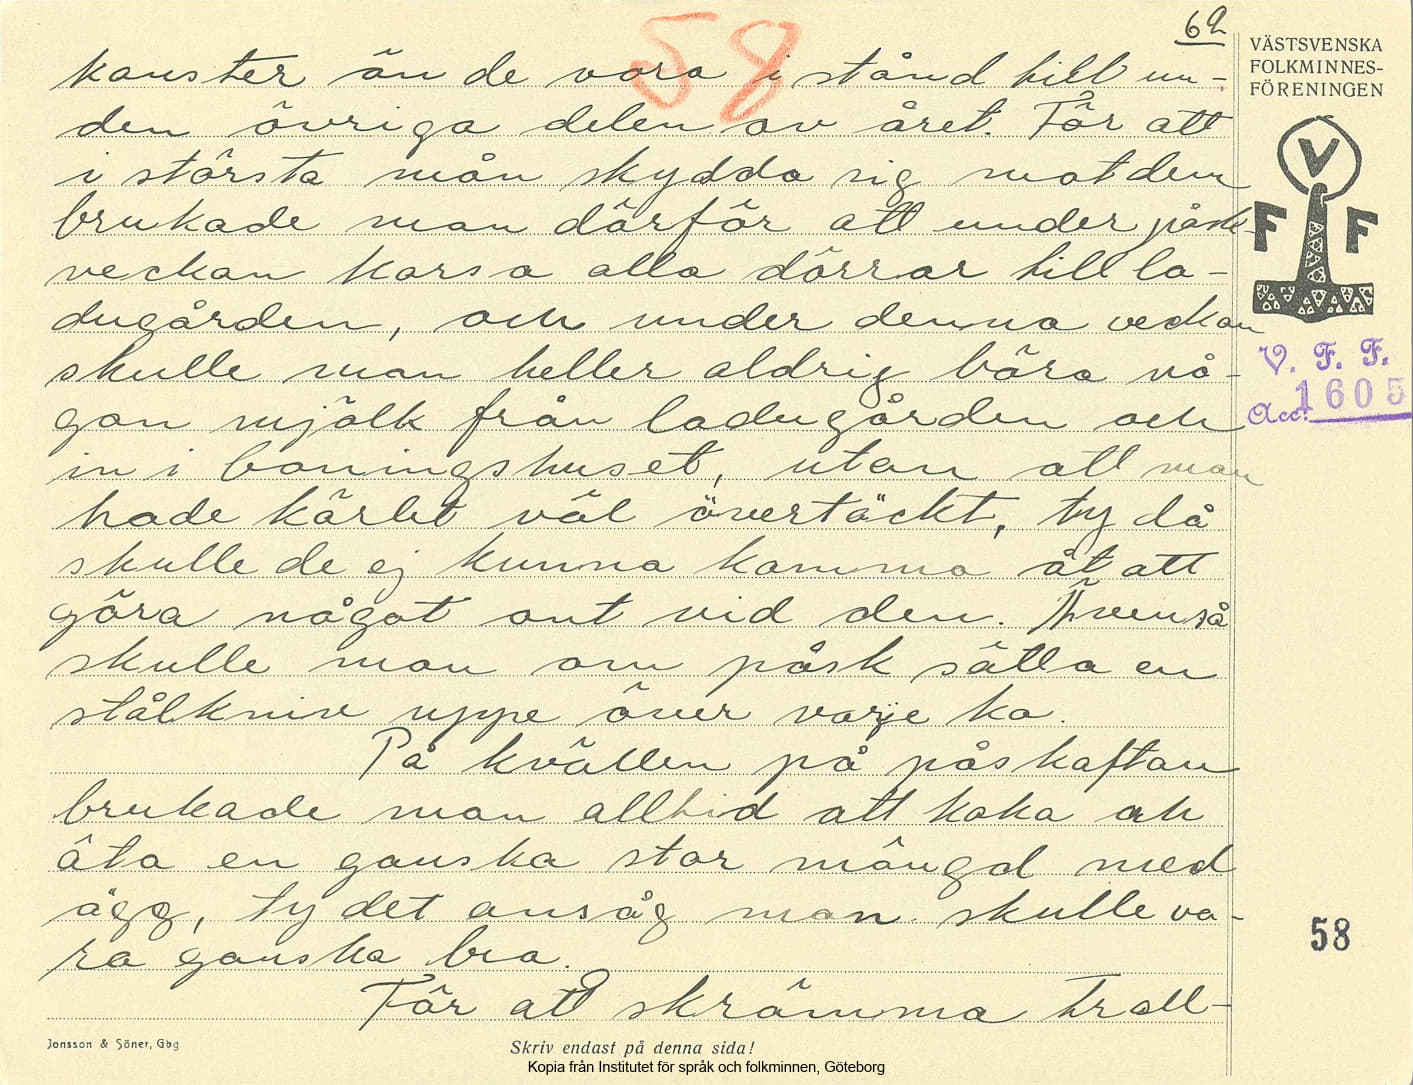 62
58
VÄSTSVENSKA
FOLKMINNES-
FÖRENINGEN
V
F F
V. F. F.
Acc: 1605
konster än de vora i stånd till un-
den övriga delen av året. För att
i största mån skydda sig mot dem
brukade man därför att under påsk-
veckan korsa alla dörrar till la-
dugården, och under denna veckan
skulle man heller aldrig bära nå-
gon mjölk från ladugården och
in i boningshuset, utan att man
hade kärlet väl övertäckt, ty då
skulle de ej kunna komma åt att
göra något ont vid den. Ävenså
skulle man om påsk sätta en
stålkniv uppe över varje ko.
På kvällen på påskaftan
brukade man alltid att koka och
äta en ganska stor mängd med
ägg, ty det ansåg man skulle va-
ra ganska bra.
För att skrämma troll-
58
Jonsson & Söner, Gbg
Skriv endast på denna sida!
Kopia från Institutet för språk och folkminnen, Göteborg